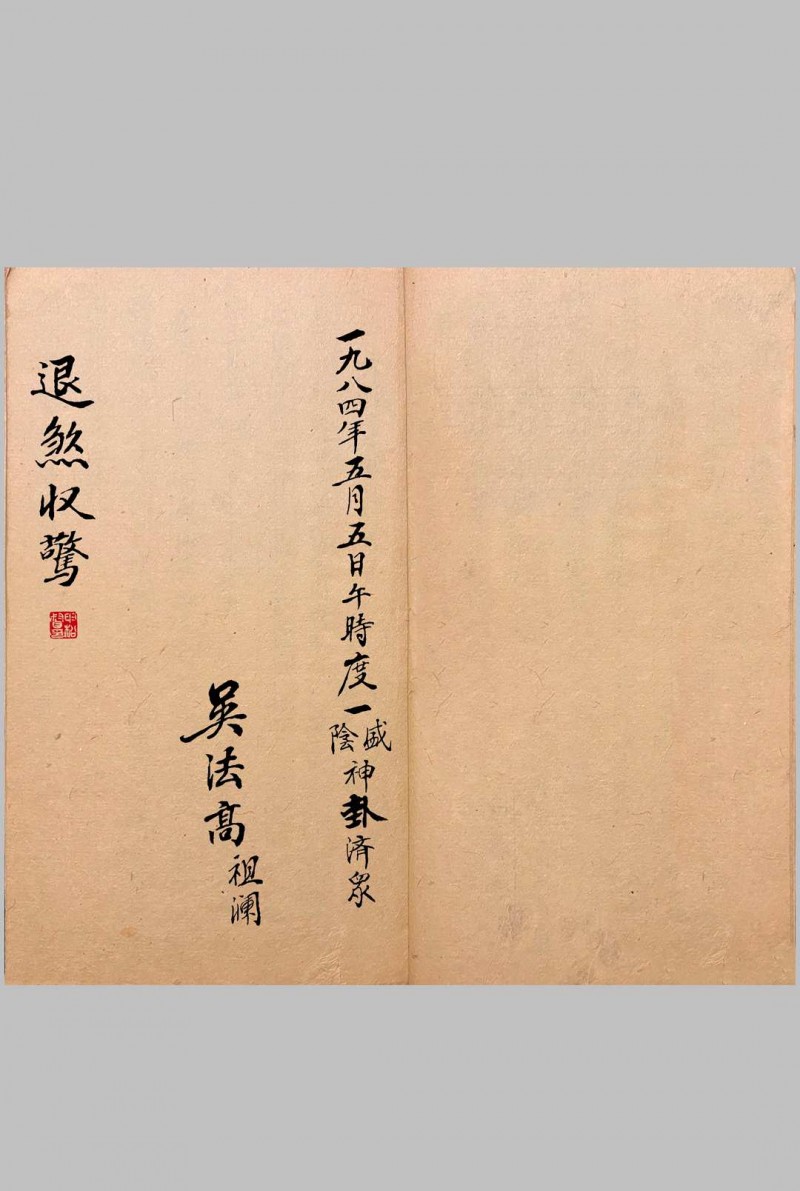 一九八四年五月五日午時度一盛陰神卦済眾
吳法高祖澜
退煞収驚